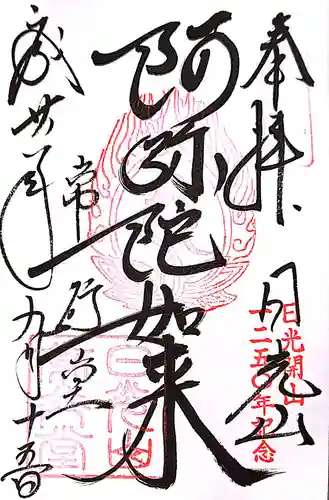 奉拝、
日光山
日光開山
一二五〇年記念
阿弥陀如来
常行堂
平成廿八年九月十五日